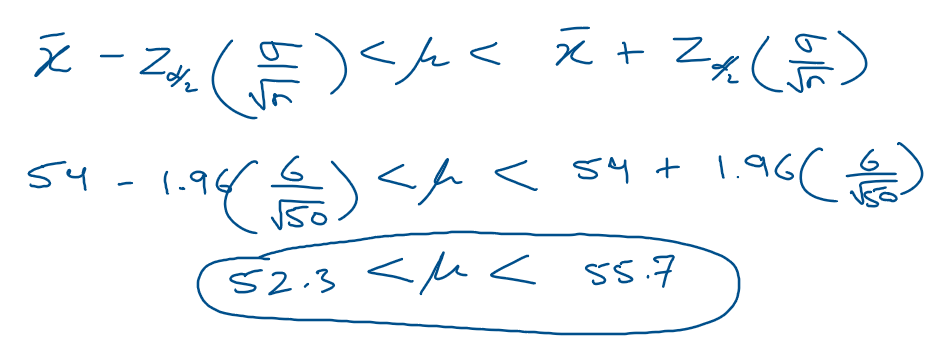 x̄ − Z_{α/2} (σ/√n) < μ < x̄ + Z_{α/2} (σ/√n)
54 − 1.96 (6/√50) < μ < 54 + 1.96 (6/√50)
52.3 < μ < 55.7